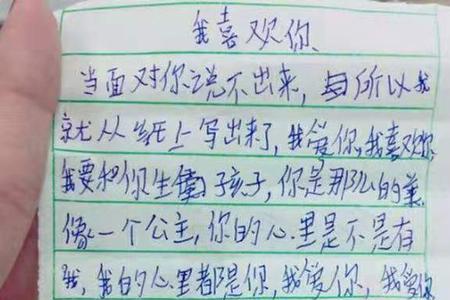 我喜欢你
当面对你说不出来，所以我
就从纸上写出来了，我爱你，我喜欢你，
我要和你生孩子，你是那么的美
像一个公主，你的心里是不是有
我，我的心里都是你，我爱你，我爱你